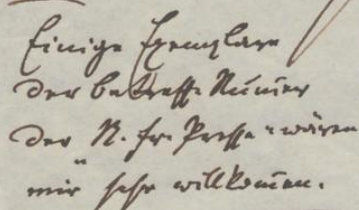 Einige Exemplare
der betreff. Num̅er
der N. fr. Presse wären
mir sehr willkom̅en.